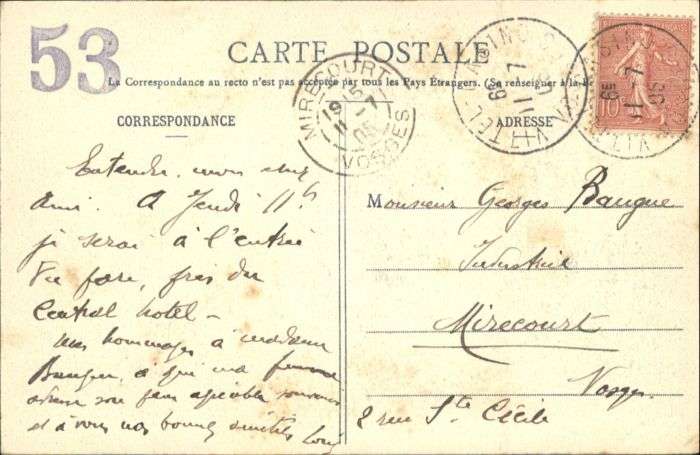 53
CARTE POSTALE
La Correspondance au recto n'est pas acceptée par tous les Pays Étrangers. (Se renseigner à la
CORRESPONDANCE
ADRESSE
MIRECOURT
VOSGES
VITTEL
10
Entendu, mon cher
ami. A Jeudi 11h
je serai à l'entrée
gare, près du
Central hotel —
mes hommages à madame
à qui ma femme
son plus agréable souvenir
et à vous nos bonnes amitiés
Monsieur Georges Baugue
Industriel
Mirecourt
Vosges
2 rue Ste Cécile